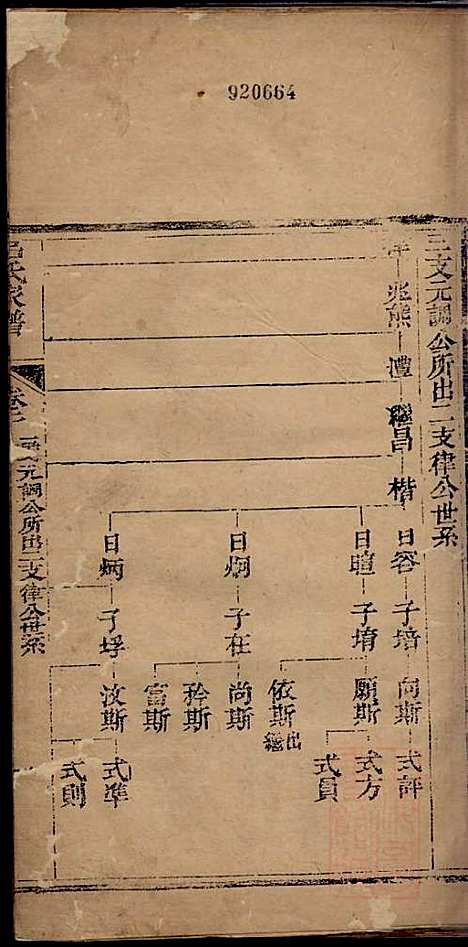 920664
三支元調公所出二支律公世系
律 兆熊 澧 繼昌 楷
日容 子培 向斯 式評
日暄 子堉 願斯 式方
式員
依斯 出繼
日炯 子在 尚斯
矜斯
富斯
日炳 子垺 汝斯 式準
式則
呂氏家譜
卷 三支元調公所出二支律公世系